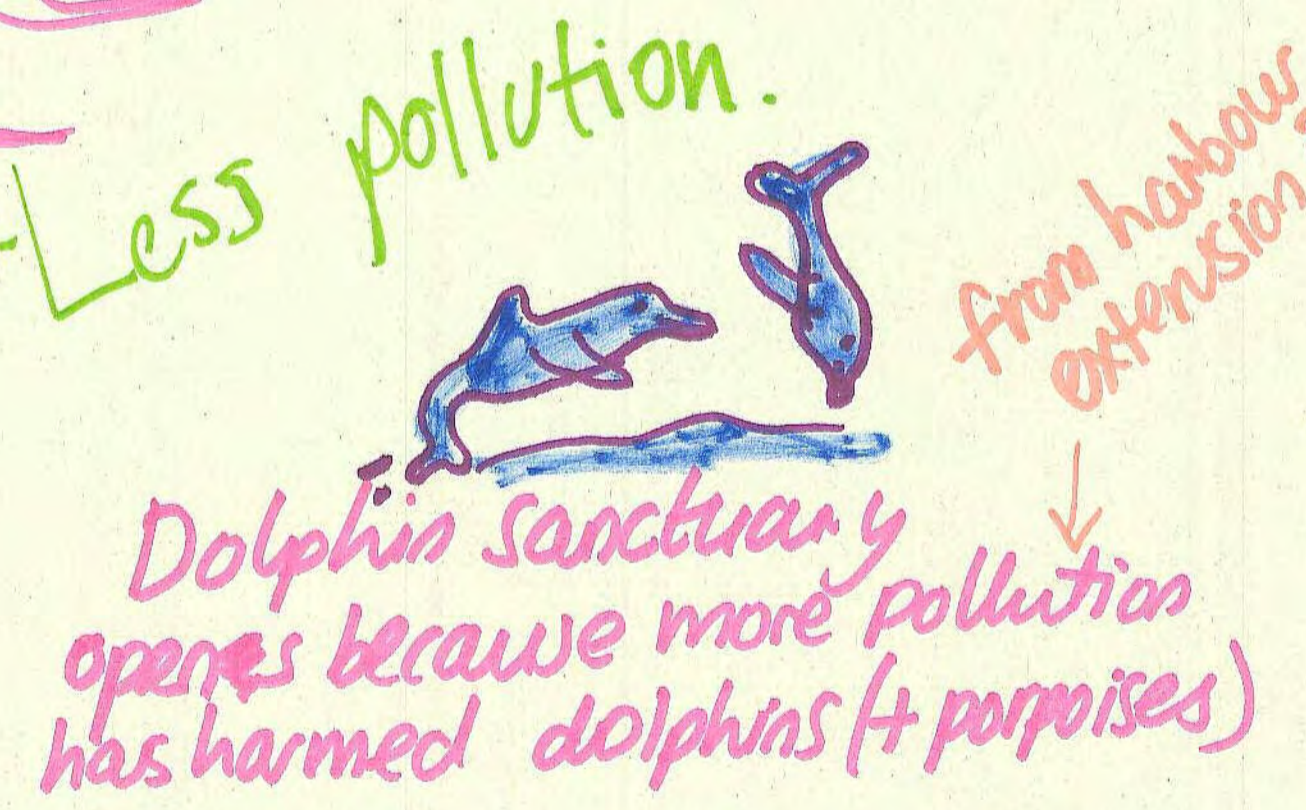 -Less pollution.
from harbour
extension
Dolphin sanctuary
opens because more pollution
has harmed dolphins (+ porpoises)